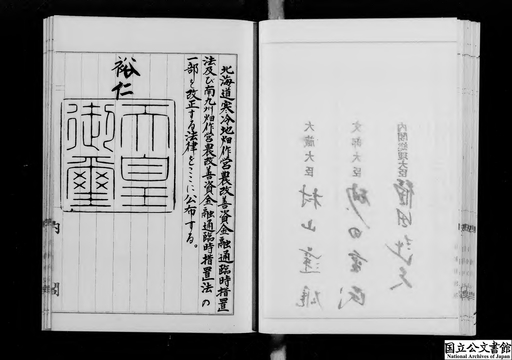 北海道寒冷地畑作営農改善資金融通臨時措置
法及び南九州畑作営農改善資金融通臨時措置法の
一部を改正する法律をここに公布する。
裕仁
天皇
御璽
内閣
内閣総理大臣
福田赳夫
文部大臣
砂田重民
大蔵大臣
村山達雄
国立公文書館
National Archives of Japan